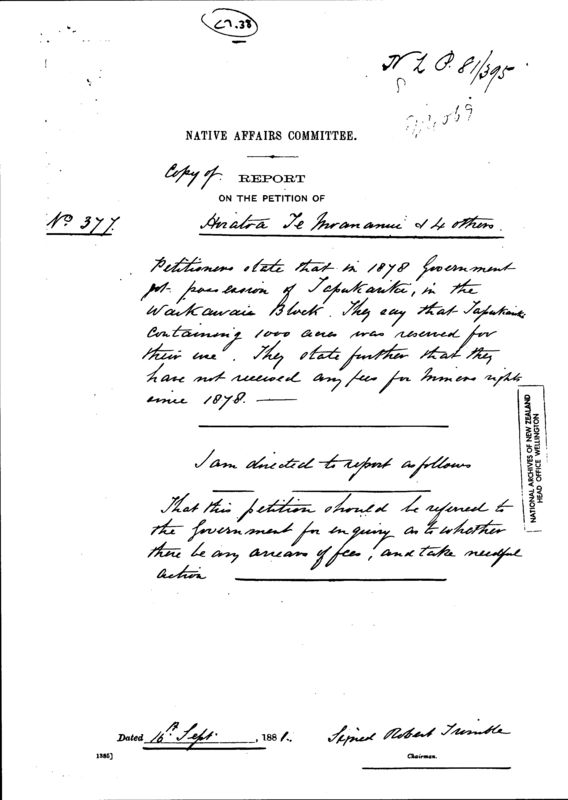 C7.38
N L P. 81/395
NATIVE AFFAIRS COMMITTEE.
Copy of REPORT
ON THE PETITION OF
No 377. Te Moananui & 4 others.
Petitioners state that in 1878 Government
got possession of Tapukarika, in the
Block. They say that
containing 1000 acres was reserved for
their use. They state further that they
have not received any fees for miners rights
since 1878. —
I am directed to report as follows
That this petition should be referred to
the Government for enquiry as to whether
there be any arrears of fees, and take needful
action
NATIONAL ARCHIVES OF NEW ZEALAND
HEAD OFFICE WELLINGTON
Dated 16th Sept. , 1881. Signed Robert Trimble
1385] Chairman.